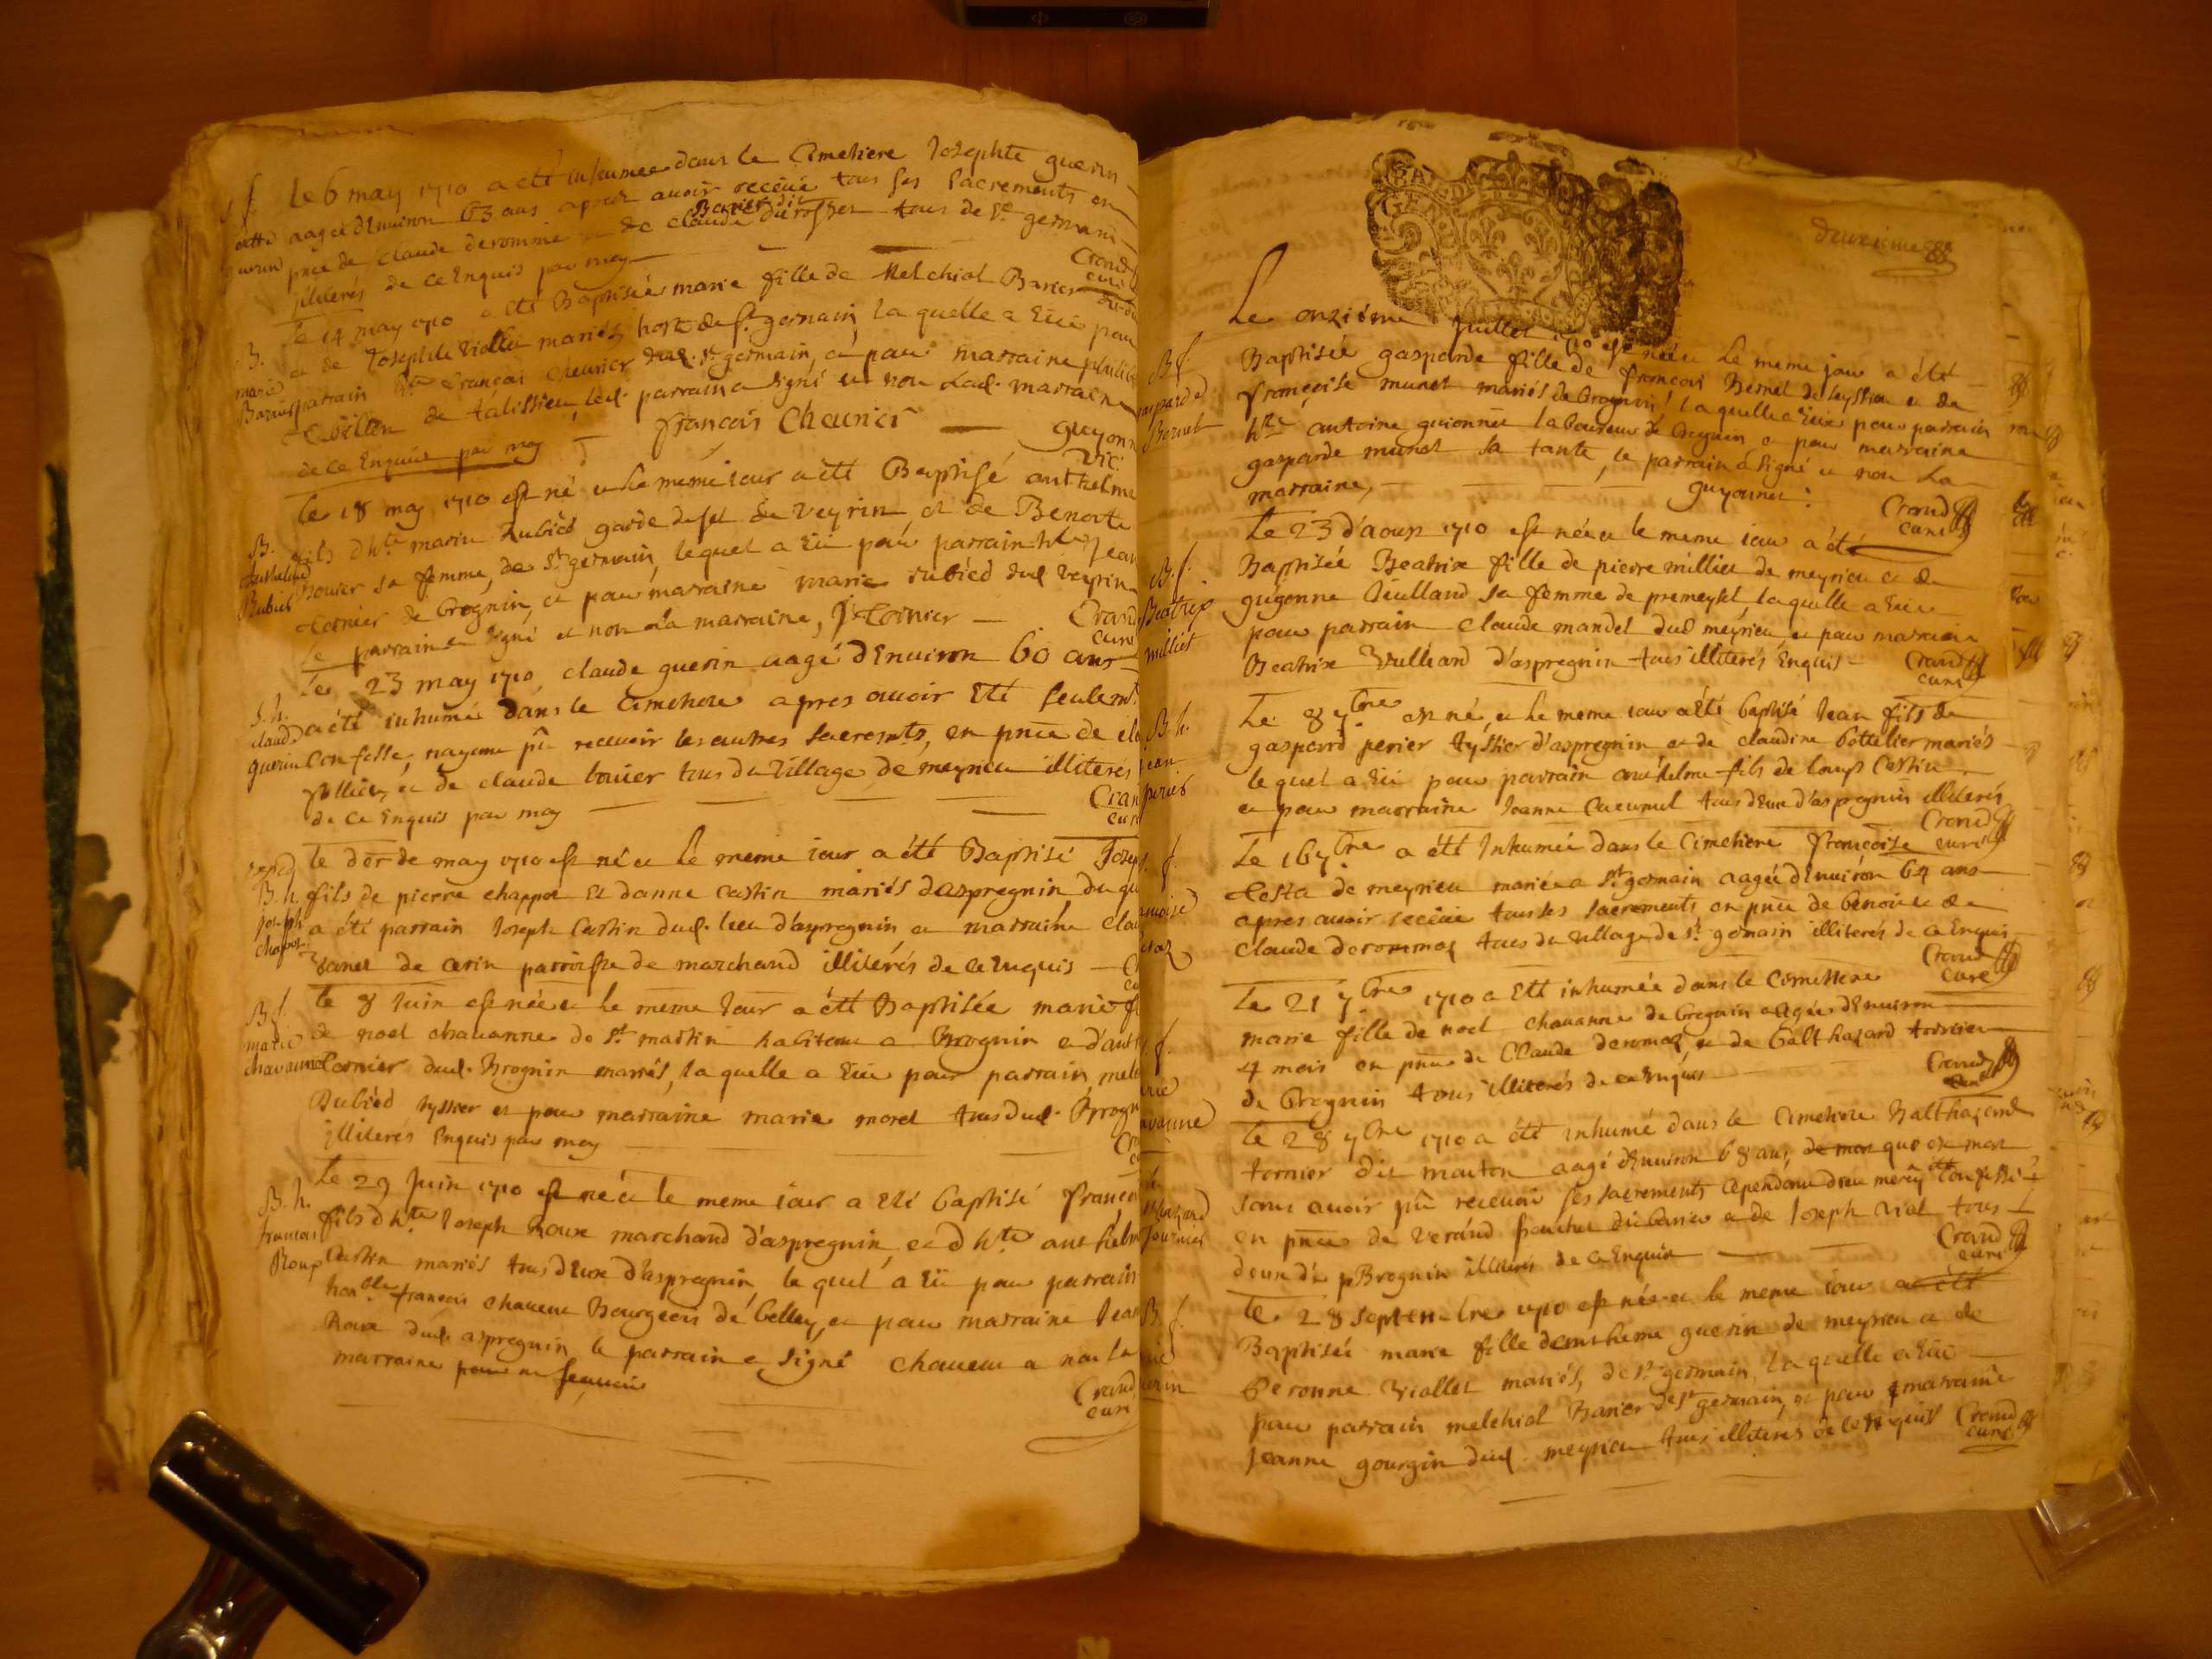 Le 6 may 1710 a eté inhumée dans le Cimetiere Josephte guerin
aagée dEnuiron 63 ans apres auoir receüe tous ses sacrements en
pnce de Claude deromme et de claude Barier dit du rosset tous de St germain
illiterés de ce Enquis par moy
Crand
curé
B.
marie
Barier
le 14 may 1710 a eté Baptisée marie fille de Melchiol Barier
et de Josephte Viollet mariés, de St germain, la quelle a Eüe pour
parrain hte francois cheurier dud. St germain, et pour marraine philib
de talissieu, led. parrain a signé et non lad. marraine
de ce Enquise par moy
francois Cheurier
guyonn
vic:
B.
Anthelme
Rubied
le 18 may 1710 est né et le meme iour a eté Baptisé anthelme
fils dhte marin Rubied garde de sel de Veyrin et de Benoite
bouier sa femme, de St germain, lequel a Eü pour parrain hte Jean
tornier de brognin, et pour marraine marie rubied dud Veyrin
le parrain a signé et non la marraine, J Tornier
Crand
curé
S. h.
claude
guerin
le 23 may 1710 claude guerin aagé dEnuiron 60 ans
a été inhumé dans le Cimetiere apres auoir Eté seulemt
Confessé, nayant pû receuoir les autres sacremts, en pnce de
et de claude bouier tous du Village de meyrieu illiterés
de ce Enquis par moy
Cran
curé
B. h.
joseph
chapot
le der de may 1710 est né et le meme iour a été Baptisé Josep
fils de pierre chappot et danne castin mariés daspregnin du qu
a été parrain Joseph Castin dud. lieu d'aspregnin et marraine clau
de cerin parroisse de marchand illitérés de ce Enquis
B f.
marie
chavanne
le 8 Juin est née et le meme Jour a été Baptisée marie f
de noel chauanne de St martin habitant a Brognin et d'ant
tornier dud. Brognin mariés, la quelle a Eüe pour parrain melc
Rubied tyssier et pour marraine marie morel tous dud. Brogn
illiterés Enquis par moy
B. h.
francois
Roux
Le 29 Juin 1710 est né et le meme iour a Eté baptisé francoi
fils d hte Joseph Roux marchand d'aspregnin, et d hte anthelm
Castin mariés tous deux d'aspregnin, le quel a Eü pour parrain
honble francois chaueur Bourgeois de belley, et pour marraine Jean
Roux dud. aspregnin, le parrain a signé chaueur et non la
marraine pour ne scauoir
Crand
curé
GEN
deuxieme
B f.
gasparde
Bornet
Le onziéme Juillet 1710 est née et Le meme jour a été
Baptisée gasparde fille de francois Bernet de leyssieu et de
francoise munet mariés de brognin, la quelle a Eüe pour parrain
hte antoine guionnet laboureur de Brognin et pour marraine
gasparde munet sa tante, le parrain a signé et non la
marraine,
guyonnet
Crand
curé
B. f.
Beatrix
milliet
Le 23 d'aoust 1710 est née et le meme iour a été
Baptisée Beatrix fille de pierre milliet de meyrieu et de
guigonne Juilland sa femme de premeysel, laquelle a Eüe
pour parrain claude mandet dud meyrieu et pour marraine
Beatrix Vulliard d'aspregnin tous illiterés Enquis
Crand
curé
B. h.
jean
perier
Le 8 7bre est né, et le meme iour a Eté baptisé Jean fils de
gaspard perier tyssier d'aspregnin et de claudine bottelier mariés
le quel a Eü pour parrain anthelme fils de louys Castin
et pour marraine Jeanne tous deux d'aspregnin illiterés
Crand
curé
Le 16 7bre a été Inhumée dans le Cimetiere francoise
de meyrieu mariée a St germain aagée dEnuiron 64 ans
apres auoir receüe tous les sacrements en pnce de benoit et de
Claude deromaz tous du village de St germain illiterés de ce Enquis
Crand
curé
Le 21 7bre 1710 a Eté inhumée dans le Cimettiere
marie fille de noel chauanne de brognin aagée dEnuiron
4 mois en pnce de Claude deromaz et de balthazard tornier
de brognin tous illiterés de ce Enquis
Crand
curé
Le 28 7bre 1710 a été inhumé dans le Cimetiere Balthazard
tornier dit mouton aagé dEnuiron 68 ans, qui est mort
sans auoir pû receuoir ses sacrements cependant dieu mercy été Confessé
en pnce de Verand dit barier et de Joseph Vial tous
deux de Brognin illiterés de ce Enquis
Crand
curé
B. f.
Le 28 septembre 1710 est née et le meme iour a été
Baptisée marie fille danthelme guerin de meyrieu et de
Peronne Viollet mariés, de St germain, la quelle a Eüe
pour parrain melchiol Barier de St germain, et pour marraine
Jeanne gourgin dud. meyrieu tous illiterés de ce Enquis
Crand
curé